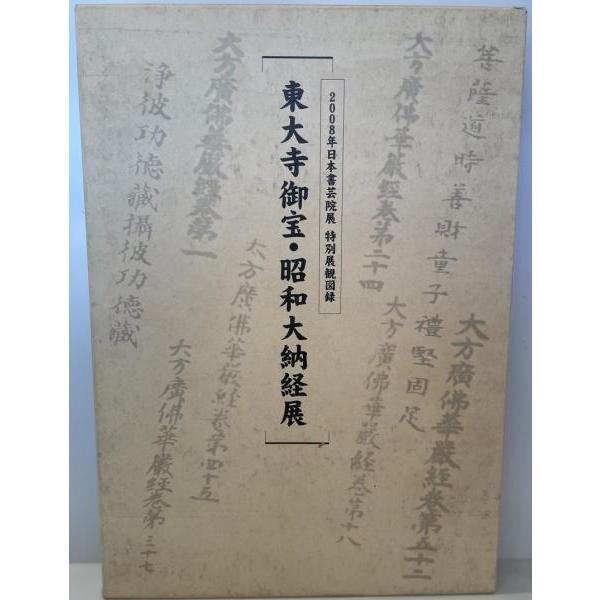 菩薩道時善財童子禮堅固足
大方廣佛華嚴經卷第五十二
大方廣佛華嚴經卷第二十四
大方廣佛華嚴經卷第十八
2008年日本書芸院展 特別展観図録
東大寺御宝・昭和大納経展
大方廣佛華嚴經卷第一
大方廣佛華嚴經卷第四十五
浄彼功徳藏攝彼功徳藏
大方廣佛華嚴經卷第三十七